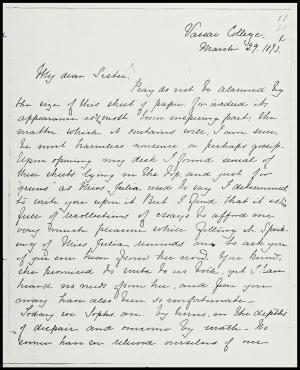 Vassar College,
March 29, 1873.
My dear Sister,
Pray do not be alarmed by
the size of this sheet of paper, for indeed its
appearance is most awe inspiring part; the
matter which it contains will, I am sure,
be most harmless nonsense or perhaps gossip.
Upon opening my desk I found several of
these sheets lying on the top, and "just for
greens" as Miss Julia used to say I determined
to write you upon it. But I find that it is
full of recollections of essays to afford me
very much pleasure while filling it. Speak-
ing of Miss Julia reminds me to ask you
if you ever hear from her now. You know,
she promised to write to us both, yet I have
heard no news from her, and fear you
may have also been so unfortunate—
Today we Sophs. are by turns, in the depths
of despair and overcome by wrath— No
sooner have we relieved ourselves of our